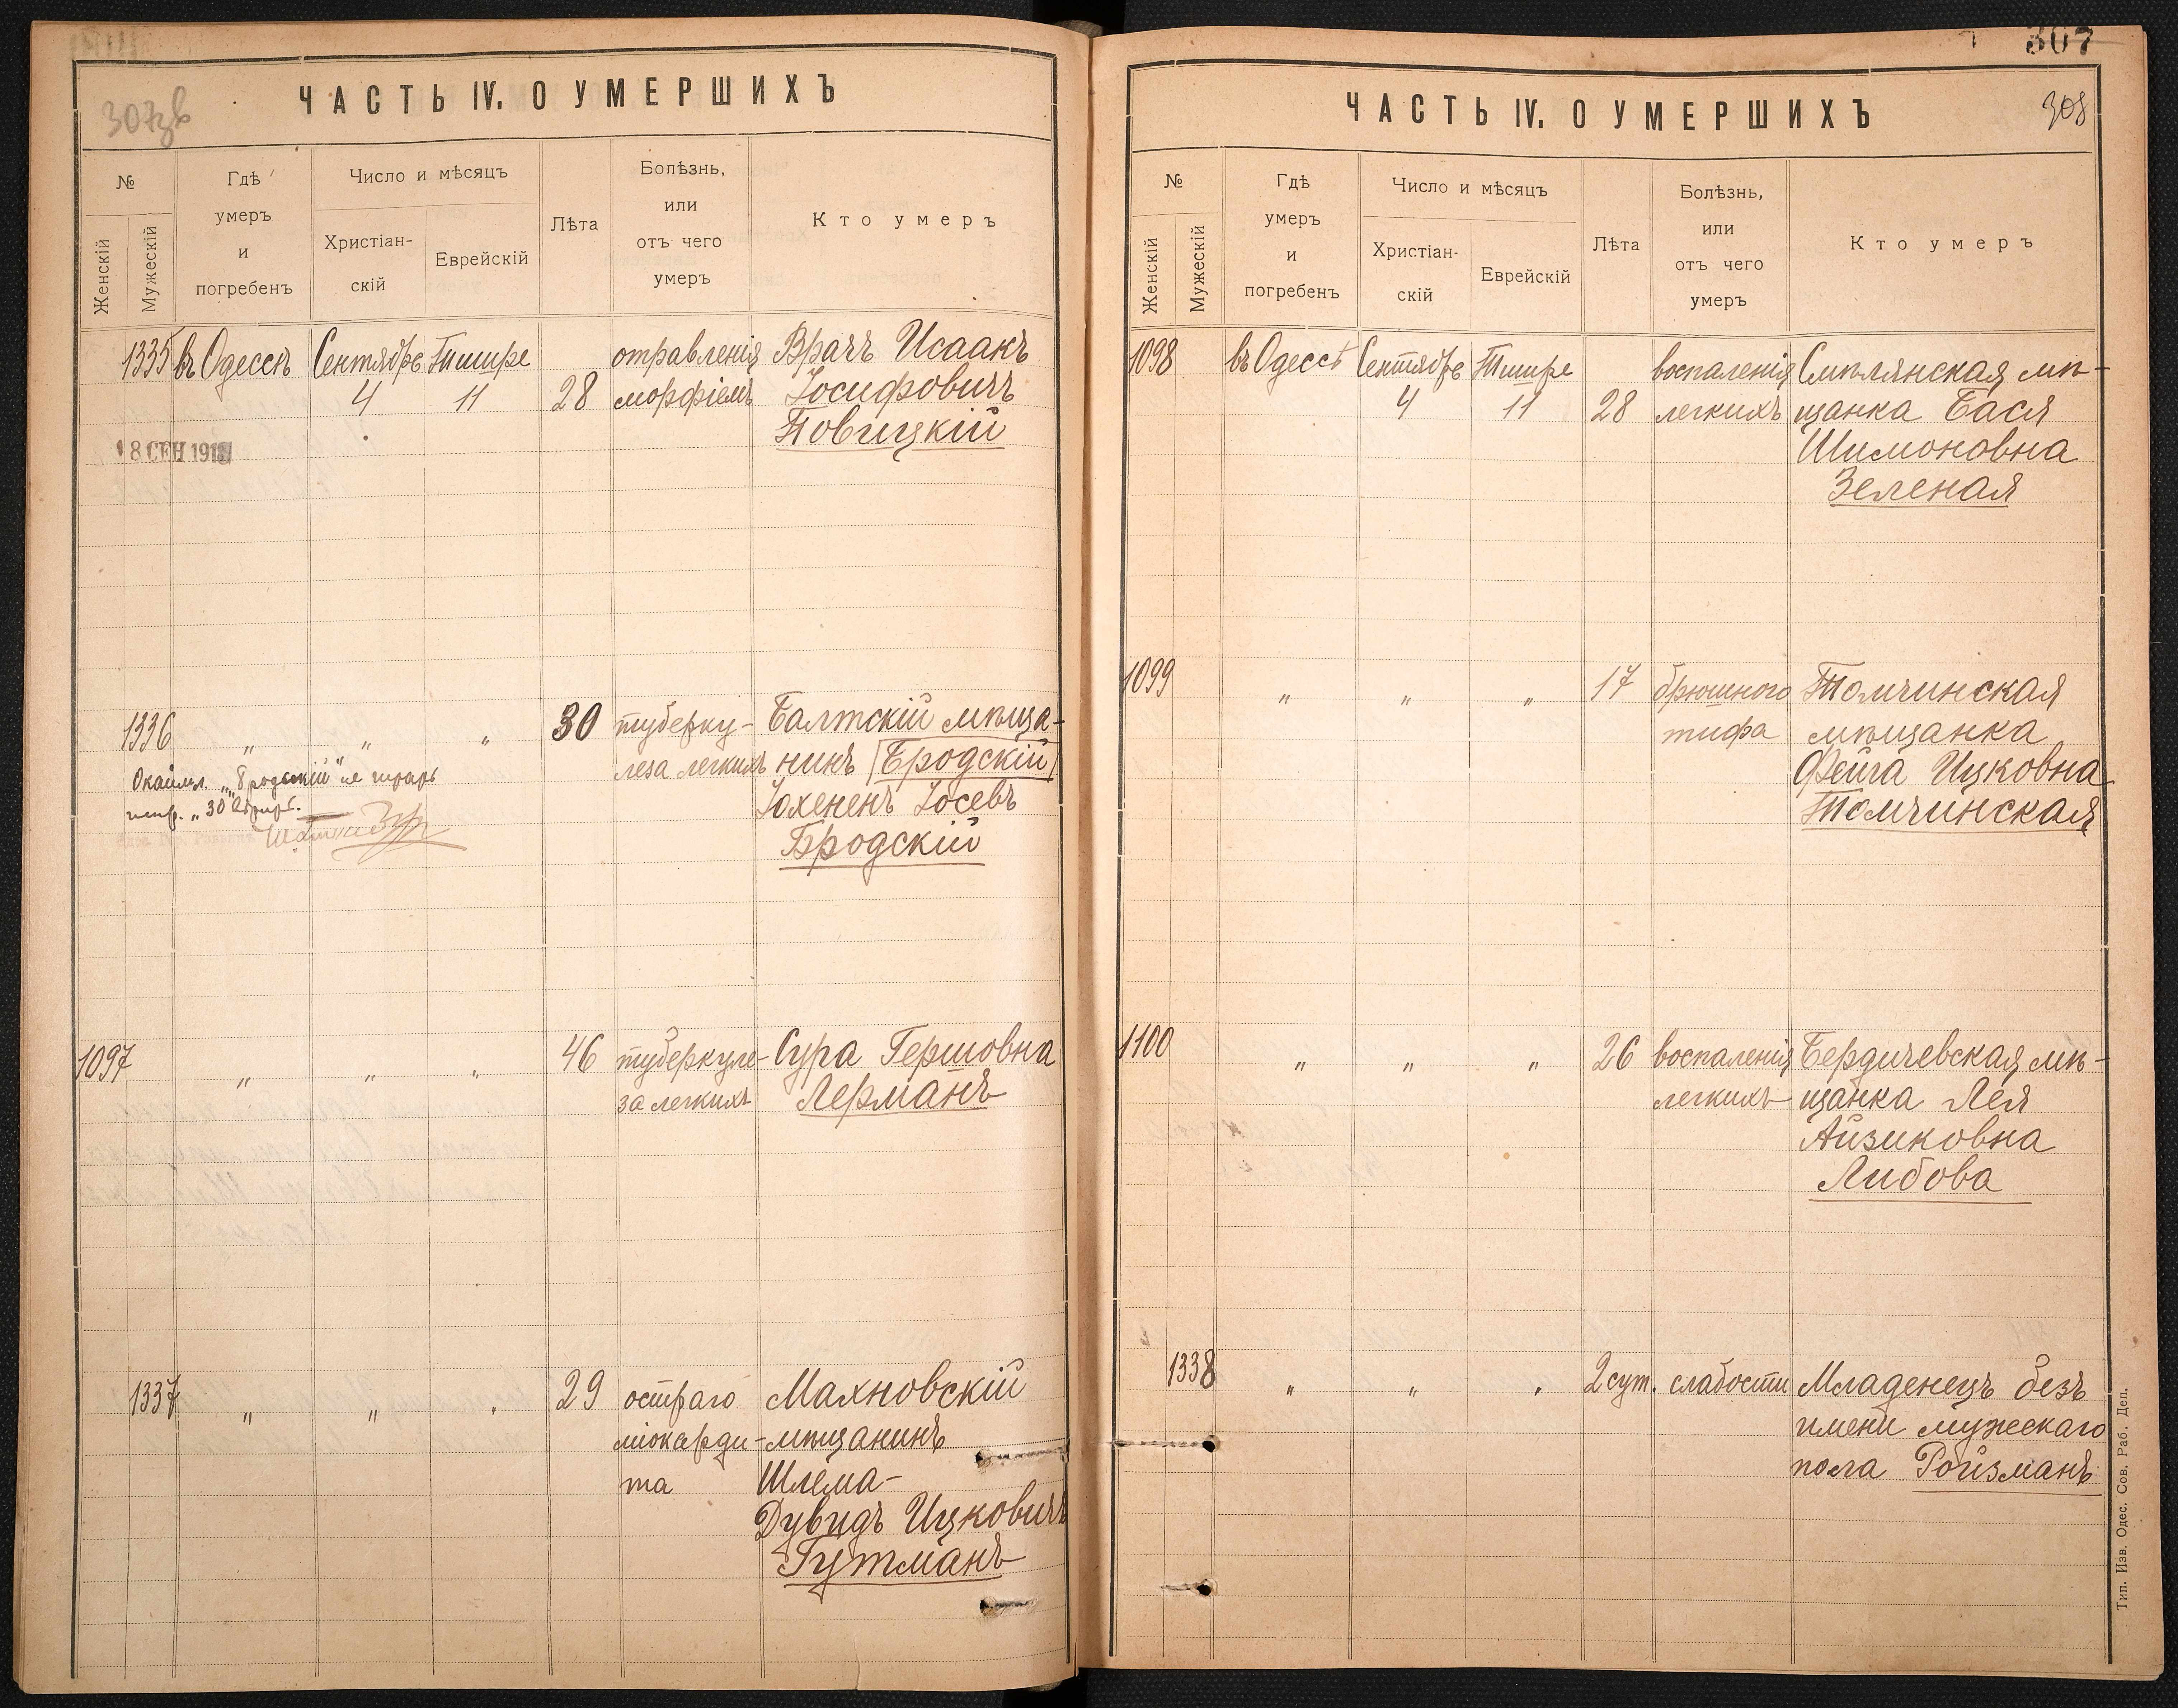 ЧАСТЬ IV. О УМЕРШИХЪ
№
Женскій
Мужескій
Гдѣ
умеръ
и
погребенъ
Число и мѣсяцъ
Христіан-
скій
Еврейскій
Лѣта
Болѣзнь,
или
отъ чего
умеръ
Кто умеръ
1335 въ Одессѣ Сентябрь Тишре отравленія Врачъ Исаакъ
4 11 28 морфіемъ Іосифовичъ
Повицкій
8 СЕН 191
1336 " " " 30 туберку- Балтскій мѣща-
леза легкихъ нинъ Бродскій
Іосевъ
Бродскій
"Бродскій" не
"30
1097 " " " 46 туберкуле- Сура Гершовна
за легкихъ Лерманъ
1337 " " " 29 остраго Махновскій
міокарди- мѣщанинъ
та Шлема-
Дувидъ Ицковичъ
Гутманъ
307
ЧАСТЬ IV. О УМЕРШИХЪ
308
№
Женскій
Мужескій
Гдѣ
умеръ
и
погребенъ
Число и мѣсяцъ
Христіан-
скій
Еврейскій
Лѣта
Болѣзнь,
или
отъ чего
умеръ
Кто умеръ
1098 въ Одессѣ Сентябрь Тишре воспаленія Смѣлянская мѣ-
4 11 28 легкихъ щанка Бася
Шимоновна
Зеленая
1099 " " " 17 брюшного Томчинская
тифа мѣщанка
Фейга Ицковна
Томчинская
1100 " " " 26 воспаленія Бердичевская мѣ-
легкихъ щанка Лея
Айзиковна
Либова
1338 " " " 2 сут. слабости Младенецъ безъ
имени мужескаго
пола Ройзманъ
Тип. Изв. Одес. Сов. Раб. Деп.